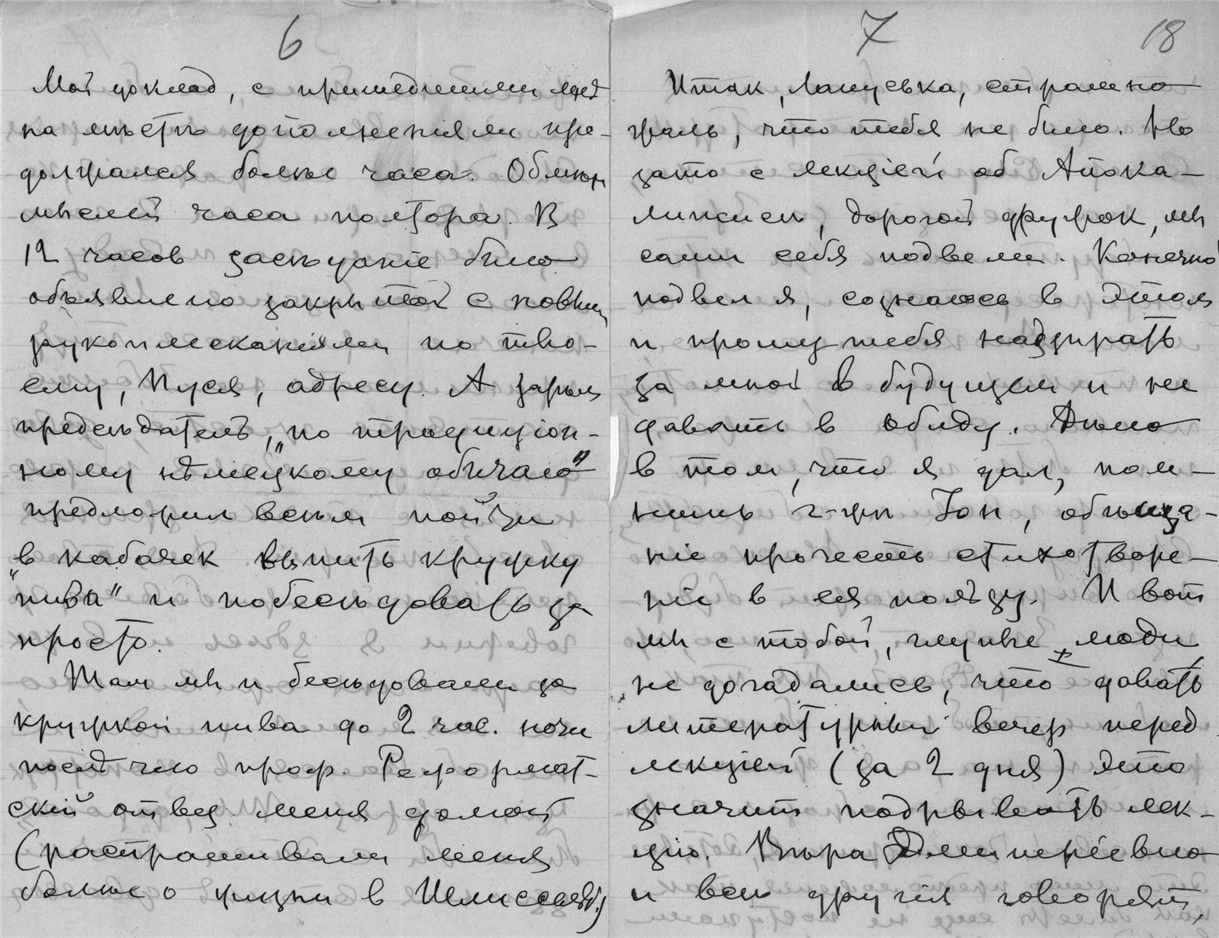 6
Мой доклад, с пришедшими мне
на мѣстѣ дополненіями про-
должался болѣе часа. Обмѣн
мыслей часа полтора. В
12 часов засѣданіе было
объявлено закрытой с новым
рукоплесканіями по тво-
ему, Пуся, адресу. А затѣм
предсѣдатель, "по традиціон-
ному нѣмецкому обычаю"
предложил всѣм пойти
"в кабачек выпить кружку
пива" и побесѣдовать за
просто.
Там мы и бесѣдовали за
кружкой пива до 2 час. ночи
послѣ чего проф. Реформат-
скій отвез меня домой
(распрашивали меня
больше о жизни в
7
18
Итак, Лапуська, страшно
жаль, что тебя не было. Но
зато с лекціей об Апока-
липсисѣ, дорогой дружок, мы
сами себя подвели. Конечно
подвел я, сознаюсь в этом
и прошу тебя надзирать
за мной в будущем и не
давать в обиду. Дѣло
в том, что я дал, пом-
нишь г-жѣ Іон, обѣща-
ніе прочесть стихотворе-
ніе в ея пользу. И вот
мы с тобой, глупые люди
не догадались, что давать
литературный вечер перед
лекціей (за 2 дня) это
значит подрывать лек-
цію. Вѣра Дмитріевна
и всѣ другія говорят,